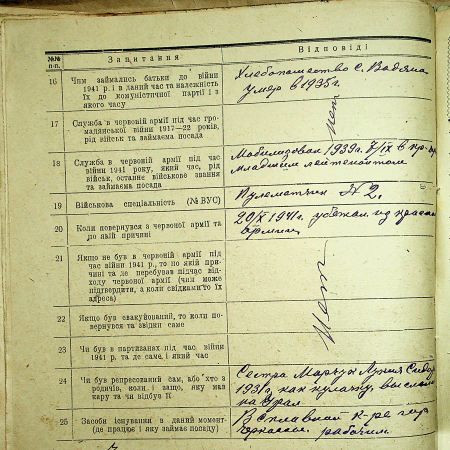 №№ п.п.
Запитання
Відповіді
16
Чим займались батьки до війни
1941 р. і в даний час та належність
їх до комуністичної партії і з
якого часу
Хлебопашество с. Водяна
умер в 1935г.
17
Служба в червоній армії під час гро-
мадянської війни 1917—22 років,
рід військ та займаєма посада
нет
18
Служба в червоній армії під час
війни 1941 року, який час, рід
військ, останнє військове звання
та займаєма посада
Мобилизован 1939г.
младшим лейтенантом
19
Військова спеціальність (№ ВУС)
Пулеметчик № 2.
20
Коли повернувся з червоної армії та
по якій причині
20/X 1941г. убежал из красной
армии
21
Якщо не був в червоній армії під
час війни 1941 р., то по якій при-
чині та де перебував підчас від-
ходу червоної армії (чим може
підтвердити, а коли свідками то їх
адреса)
Нет
22
Якщо був евакуйований, то коли по-
вернувся та звідки саме
23
Чи був в партизанах під час війни
1941 р. та де саме і який час
24
Чи був репресований сам, або хто з
родичів, коли і защо, яку мав
кару та чи відбув її
Сестра
1931г, как кулачку, выслали
на Урал
25
Засоби існування в даний момент
(де працює і яку займає посаду)
рабочим